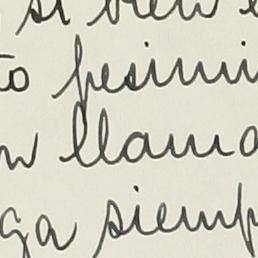 si bien e
to pesimi
n llama
ga siemp